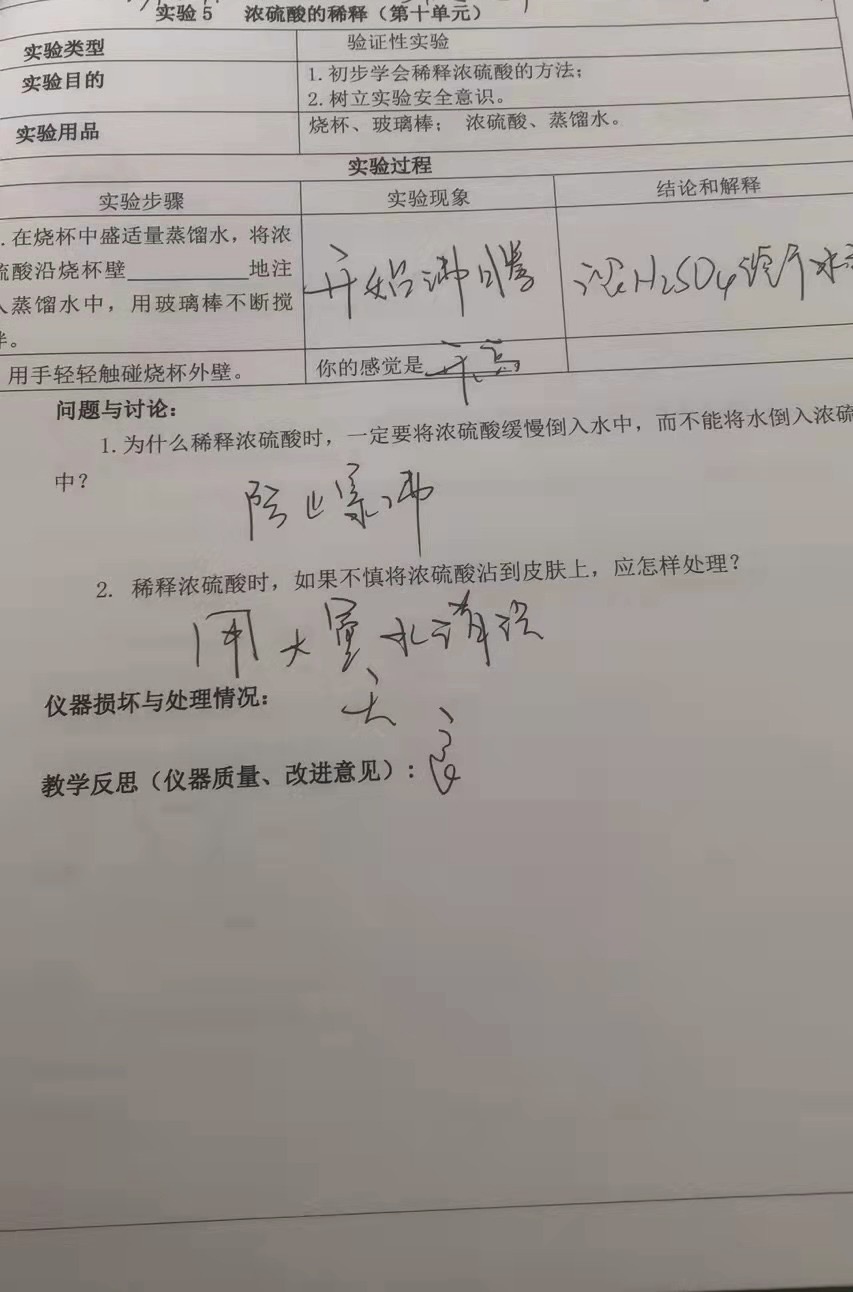 实验5 浓硫酸的稀释（第十单元）
实验类型 验证性实验
实验目的 1.初步学会稀释浓硫酸的方法；
2.树立实验安全意识。
实验用品 烧杯、玻璃棒； 浓硫酸、蒸馏水。
实验过程
实验步骤 实验现象 结论和解释
.在烧杯中盛适量蒸馏水，将浓
硫酸沿烧杯壁____________地注
入蒸馏水中，用玻璃棒不断搅
拌。
开始沸腾
浓H2SO4
用手轻轻触碰烧杯外壁。 你的感觉是
问题与讨论：
1.为什么稀释浓硫酸时，一定要将浓硫酸缓慢倒入水中，而不能将水倒入浓硫
中？
防止暴沸
2. 稀释浓硫酸时，如果不慎将浓硫酸沾到皮肤上，应怎样处理？
用大量水清洗
仪器损坏与处理情况：
教学反思（仪器质量、改进意见）：